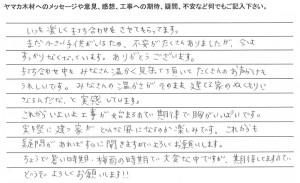 ヤマカ木材へのメッセージや意見、感想、工事への期待、疑問、不安など何でもご記入下さい。
いつも楽しく打ち合わせをさせてもらってます。
まだ小さい子供がいるため、不安がたくさんありましたが、今は
すっかりなくなっています。ありがとうございます。
打ち合わせ中も みなさん温かく見守って頂いて たくさんのお声かけも
うれしいです。みなさんの温かさが そのまま 建てる家のぬくもりに
なるんだな、と 実感しています。
これから いよいよ 工事が 始まるので 期待で 胸がいっぱいです。
実際に 建つ家が どんな風になるのか 楽しみです。これからも
疑問が あれば すぐに 聞きますので よろしくお願いします。
ちょうど 暑い時期、梅雨の時期で 大変な中ですが、期待してますので
どうぞ よろしくお願いします!!